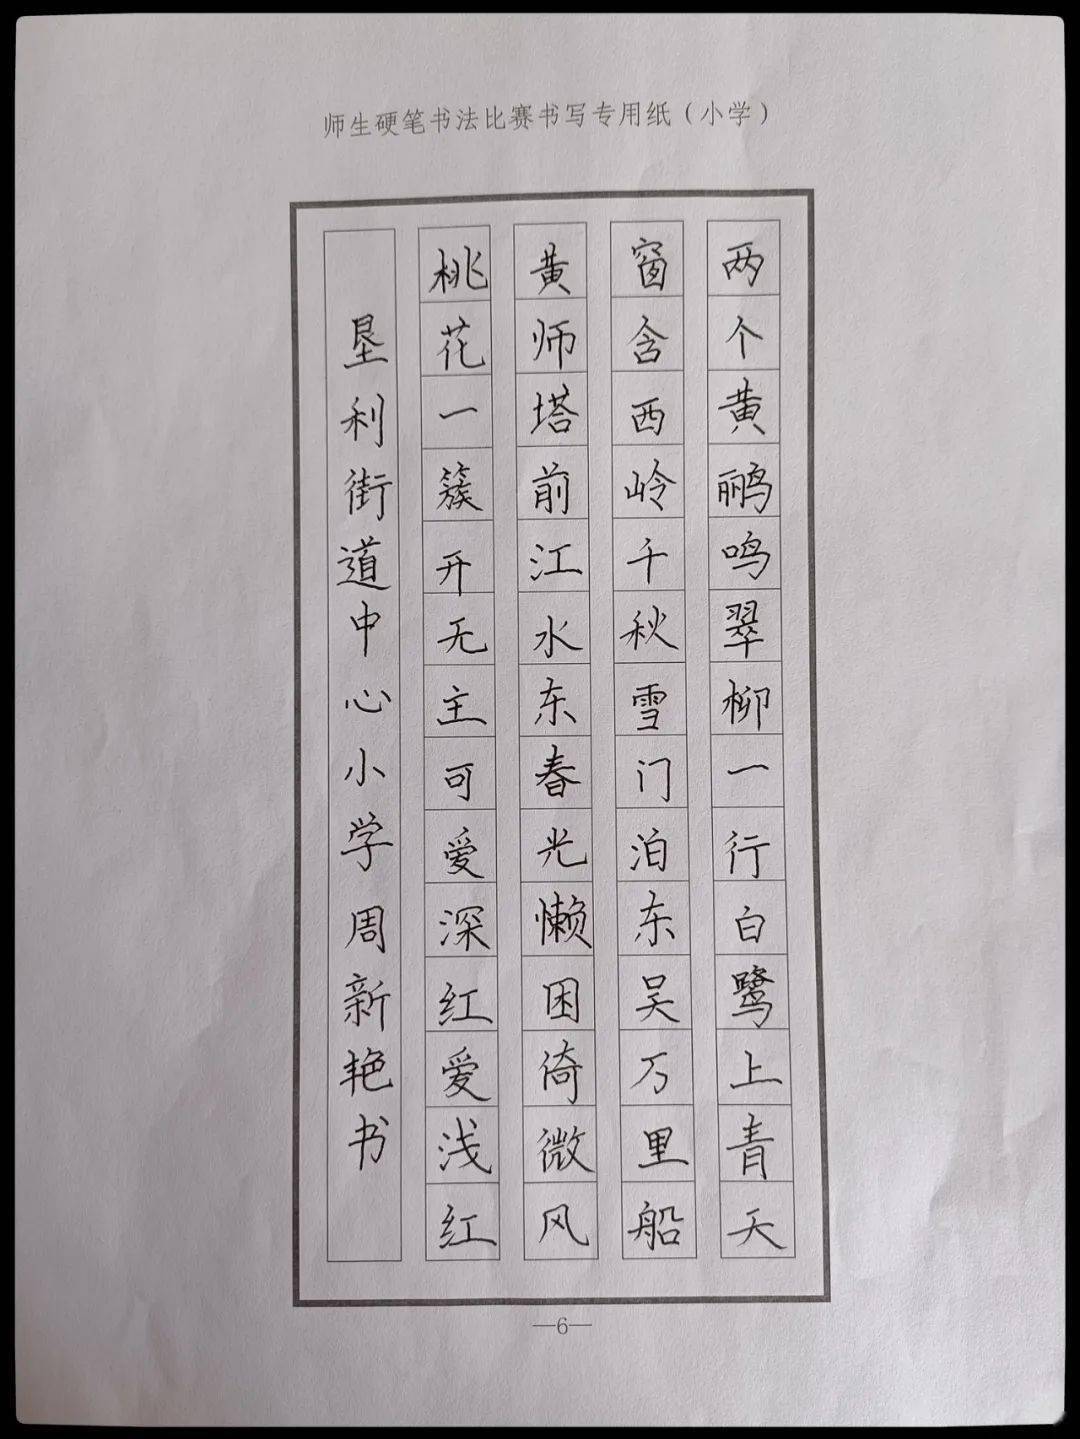 师生硬笔书法比赛书写专用纸（小学）
两个黄鹂鸣翠柳一行白鹭上青天
窗含西岭千秋雪门泊东吴万里船
黄师塔前江水东春光懒困倚微风
桃花一簇开无主可爱深红爱浅红
垦利街道中心小学周新艳书
—6—